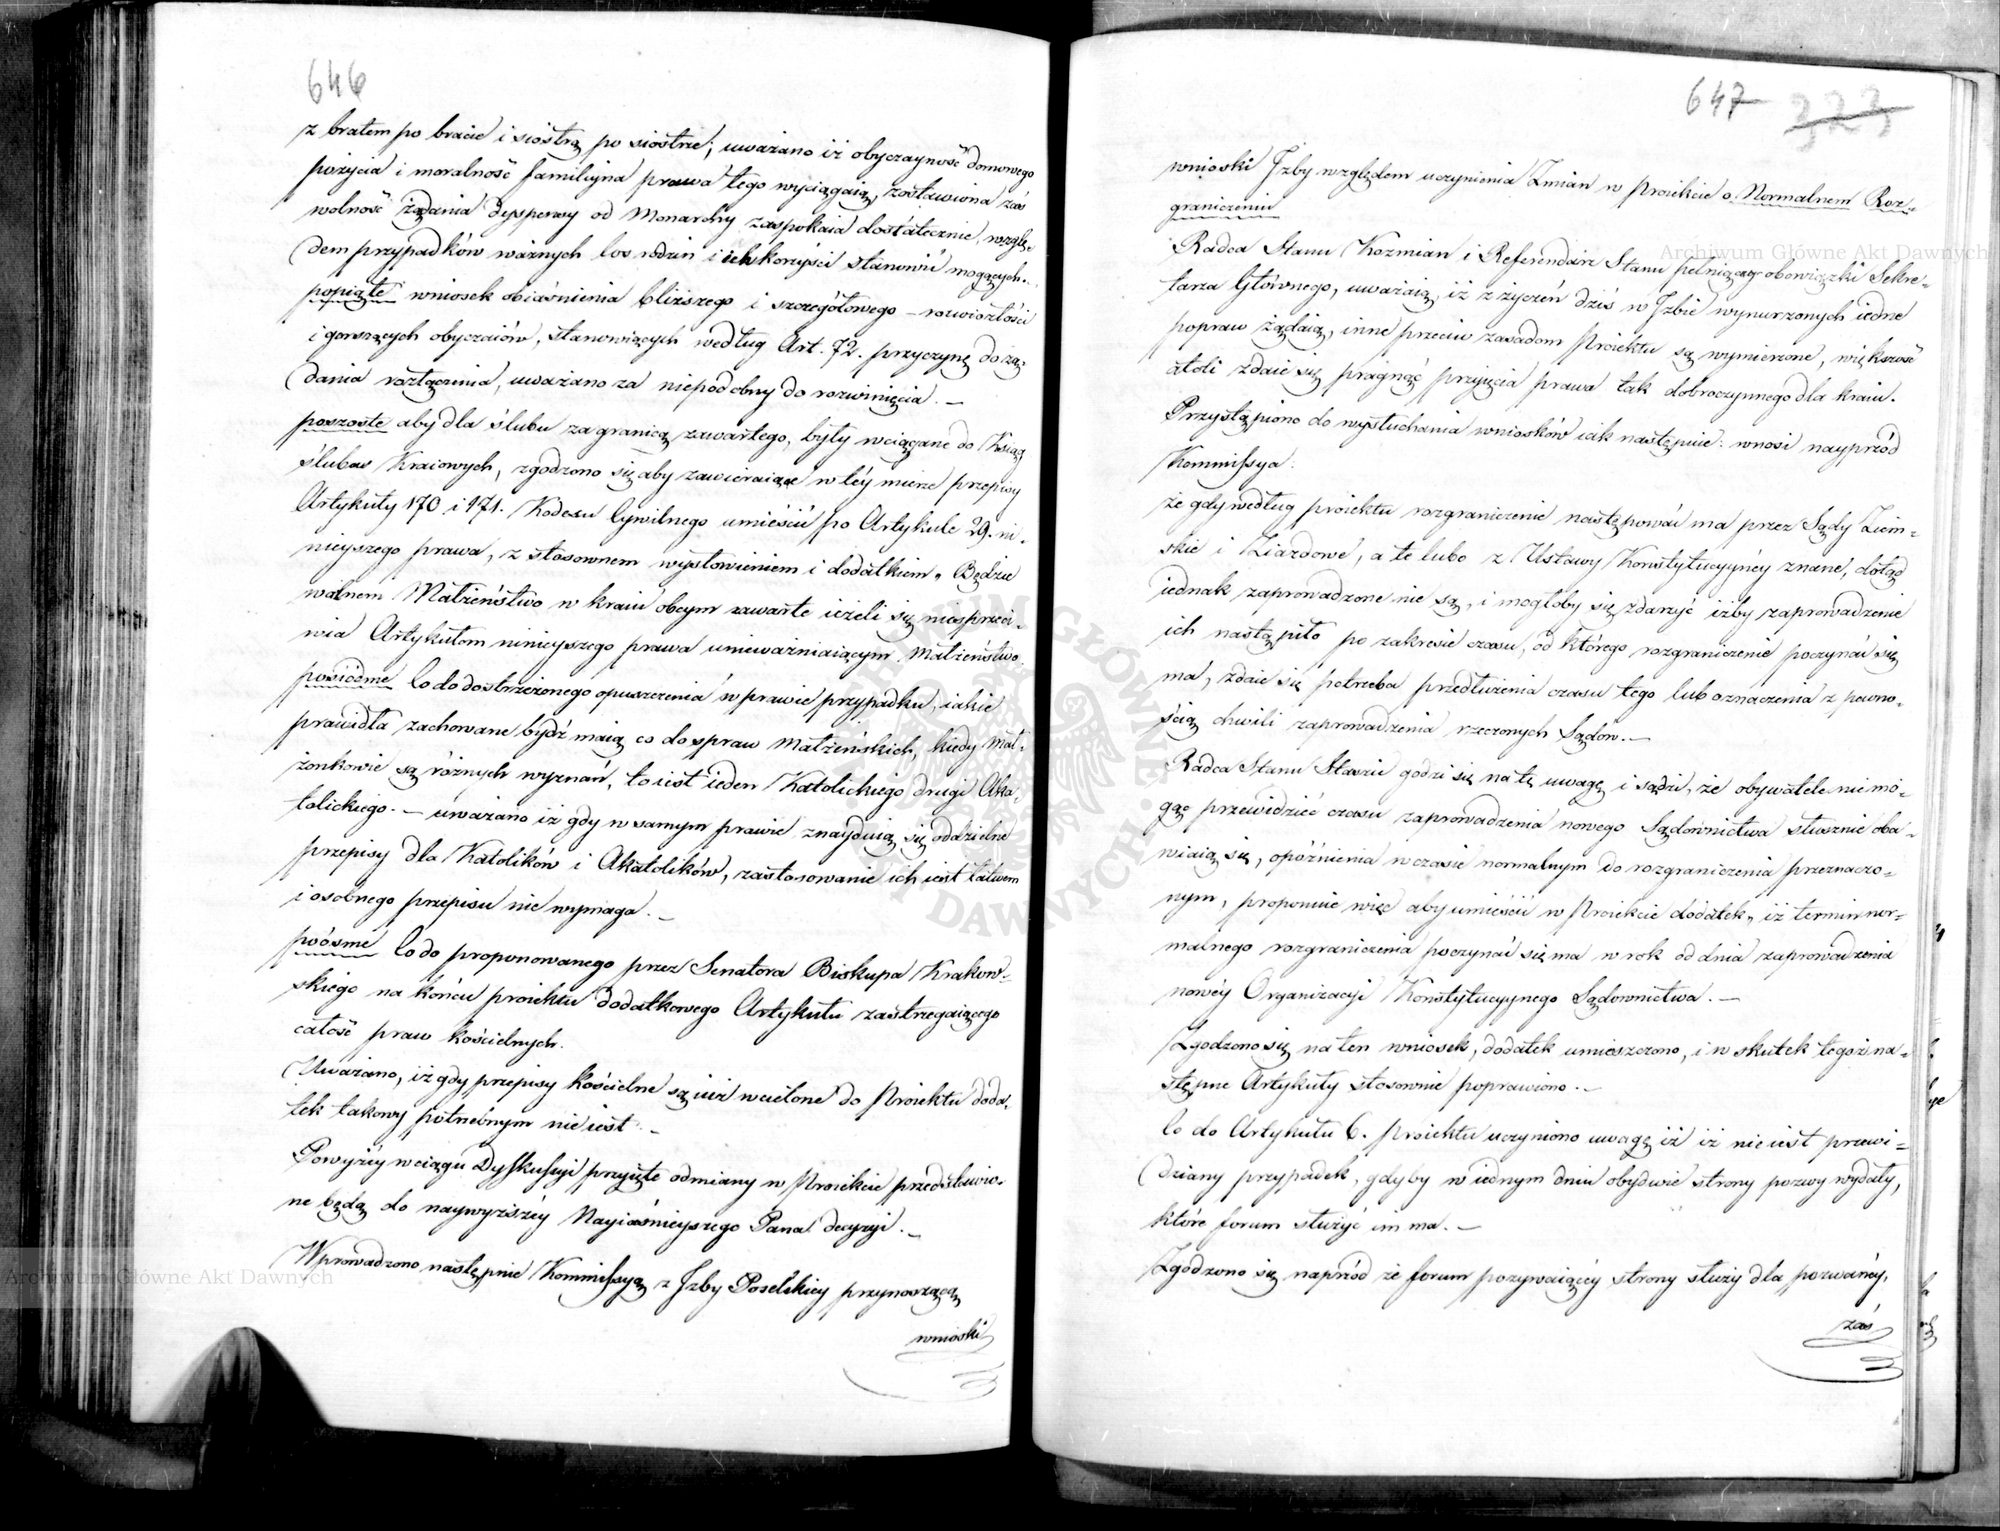 646
z bratem po bracie i siostrą po siostrze; uważano iż obyczayność domowego
pożycia i moralność familiyna prawa tego wyciągaią, zostawiona zaś
wolność żądania dyspensy od Monarchy zaspokaia dostatecznie, wzglę-
dem przypadków ważnych los rodzin i ich korzyści stanowić mogących.
popiąte wniosek obiaśnienia bliższego i szczegółowego – rozwiozłości
i gorszących obyczaiów, stanowiących według Art. 72. przyczynę do żą-
dania rozłączenia, uważano za niepodobny do rozwinięcia. –
poszoste aby dla ślubu za granicą zawartego, były wciągane do Ksiąg
ślubów Kraiowych, zgodzono się aby zawieraiące w téy mierze przepisy
Artykuły 170 i 171. Kodexu Cywilnego umieścić po Artykule 29. ni-
nieyszego prawa, z stosownem wysłowieniem i dodatkiem „ Będzie
ważnem Małżeństwo w kraiu obcym zawarte ieżeli się niesprzeci-
wia Artykułom ninieyszego prawa unieważniaiącym Małżeństwo.
posiódme Co do dostrzeżonego opuszczenia w prawie przypadku, iakie
prawidła zachowane bydź maią co do spraw Małżeńskich, kiedy Mał-
żonkowie są różnych wyznań, to iest ieden Katolickiego drugi Aka-
tolickiego. – uważano iż gdy w samym prawie znayduią się oddzielne
przepisy dla Katolików i Akatolików, zastosowanie ich iest łatwem
i osobnego przepisu nie wymaga. –
poósme Co do proponowanego przez Senatora Biskupa Krakow-
skiego na końcu proiektu dodatkowego Artykułu zastrzegaiącego
całość praw kościelnych.
Uważano, iż gdy przepisy kościelne są iuż wcielone do Proiektu doda-
tek takowy potrzebnym nie iest. –
Powyżéy w ciągu Dyskussyi przyięte odmiany w Proiekcie przedstawio-
ne będą do naywyższéy Nayiaśnieyszego Pana decyzyi. –
Wprowadzono następnie Kommissyą z Izby Poselskiey przynoszącą
wnioski
647 323
wnioski Izby względem uczynienia Zmian w Proiekcie o Normalnem Roz-
graniczeniu
Radca Stanu Kozmian i Referendarz Stanu pełniący obowiązki Sekre-
tarza Głównego, uważaią, iż z życzeń dziś w Izbie wynurzonych iedne
popraw żądaią, inne przeciw zasadom Proiektu są wymierzone, większość
atoli zdaie się pragnąć przyięcia prawa tak dobroczynnego dla kraiu.
Przystąpiono do wysłuchania wniosków iak następuie: wnosi nayprzód
Kommissya:
że gdy według proiektu rozgraniczenie następować ma przez Sądy Ziem-
skie i Ziazdowe, a te lubo z Ustawy Konstytucyynéy znane, dotąd
iednak zaprowadzone nie są, i mogłoby się zdarzyć iżby zaprowadzenie
ich nastąpiło po zakresie czasu, od którego rozgraniczenie poczynać się
ma, zdaie się potrzeba przedłużenia czasu tego lub oznaczenia z pewno-
ścią chwili zaprowadzenia rzeczonych Sądów. –
Radca Stanu Staszic godzi się na tę uwagę i sądzi, że obywatele nie mo-
gąc przewidzieć czasu zaprowadzenia nowego Sądownictwa słusznie oba-
wiaią się, opóźnienia w czasie normalnym do rozgraniczenia przeznaczo-
nym, proponuie więc aby umieścić w Proiekcie dodatek „ iż termin nor-
malnego rozgraniczenia poczynać się ma w rok od dnia zaprowadzenia
nowéy Organizacyi Konstytucyynego Sądownictwa. –
Zgodzono się na ten wniosek, dodatek umieszczono, i w skutek tegoż na-
stępne Artykuły stosownie poprawiono. –
Co do Artykułu 6. proiektu uczyniono uwagę iż iż nie iest przewi-
dziany przypadek, gdyby w iednym dniu obydwie strony pozwy wydały,
które forum służyć im ma. –
Zgodzono się naprzód że forum pozywaiącéy strony służy dla pozwanéy,
zaś
Archiwum Główne Akt Dawnych
Archiwum Główne Akt Dawnych
ARCHIWUM GŁÓWNE AKT DAWNYCH